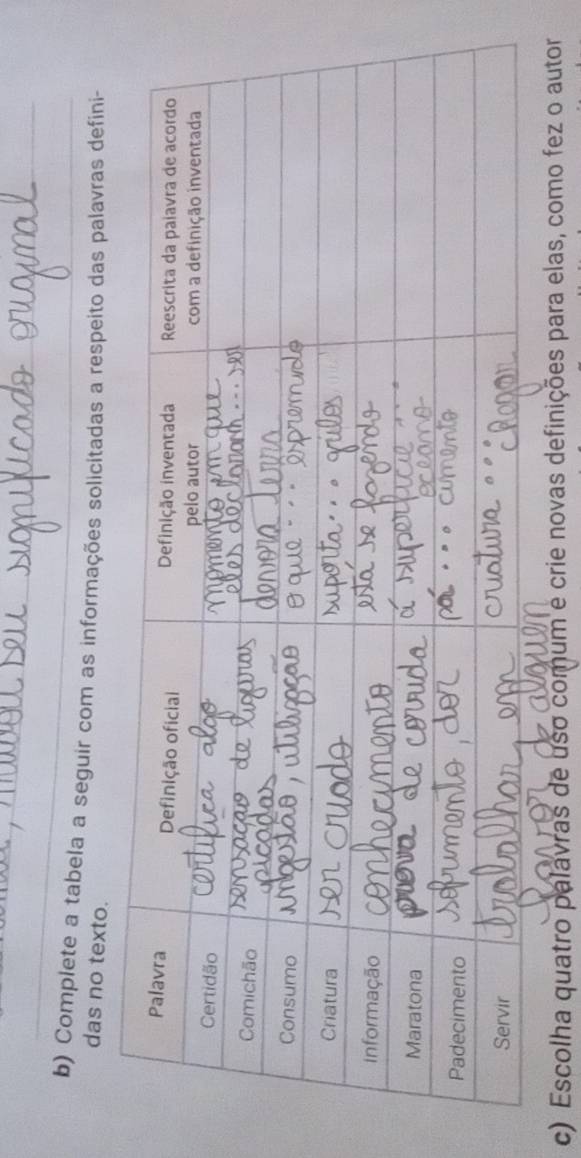 seu significado original
b) Complete a tabela a seguir com as informações solicitadas a respeito das palavras defini-
das no texto.
Palavra
Definição oficial
Definição inventada
pelo autor
Reescrita da palavra de acordo
com a definição inventada
Certidão
certifica algo
momento em que
eles declararam... ser
Comichão
sensação de ligeiras
picadas
devora terra
Consumo
ingestão, utilização
o que... espremido
Criatura
ser criado
suporta... grilos
Informação
conhecimento
está se fazendo
Maratona
prova de corrida
á superfície...
oceano
Padecimento
sofrimento, dor
pá... cimento
Servir
trabalhar em
favor de alguen
criatura...
chegar
c) Escolha quatro palavras de uso comum e crie novas definições para elas, como fez o autor